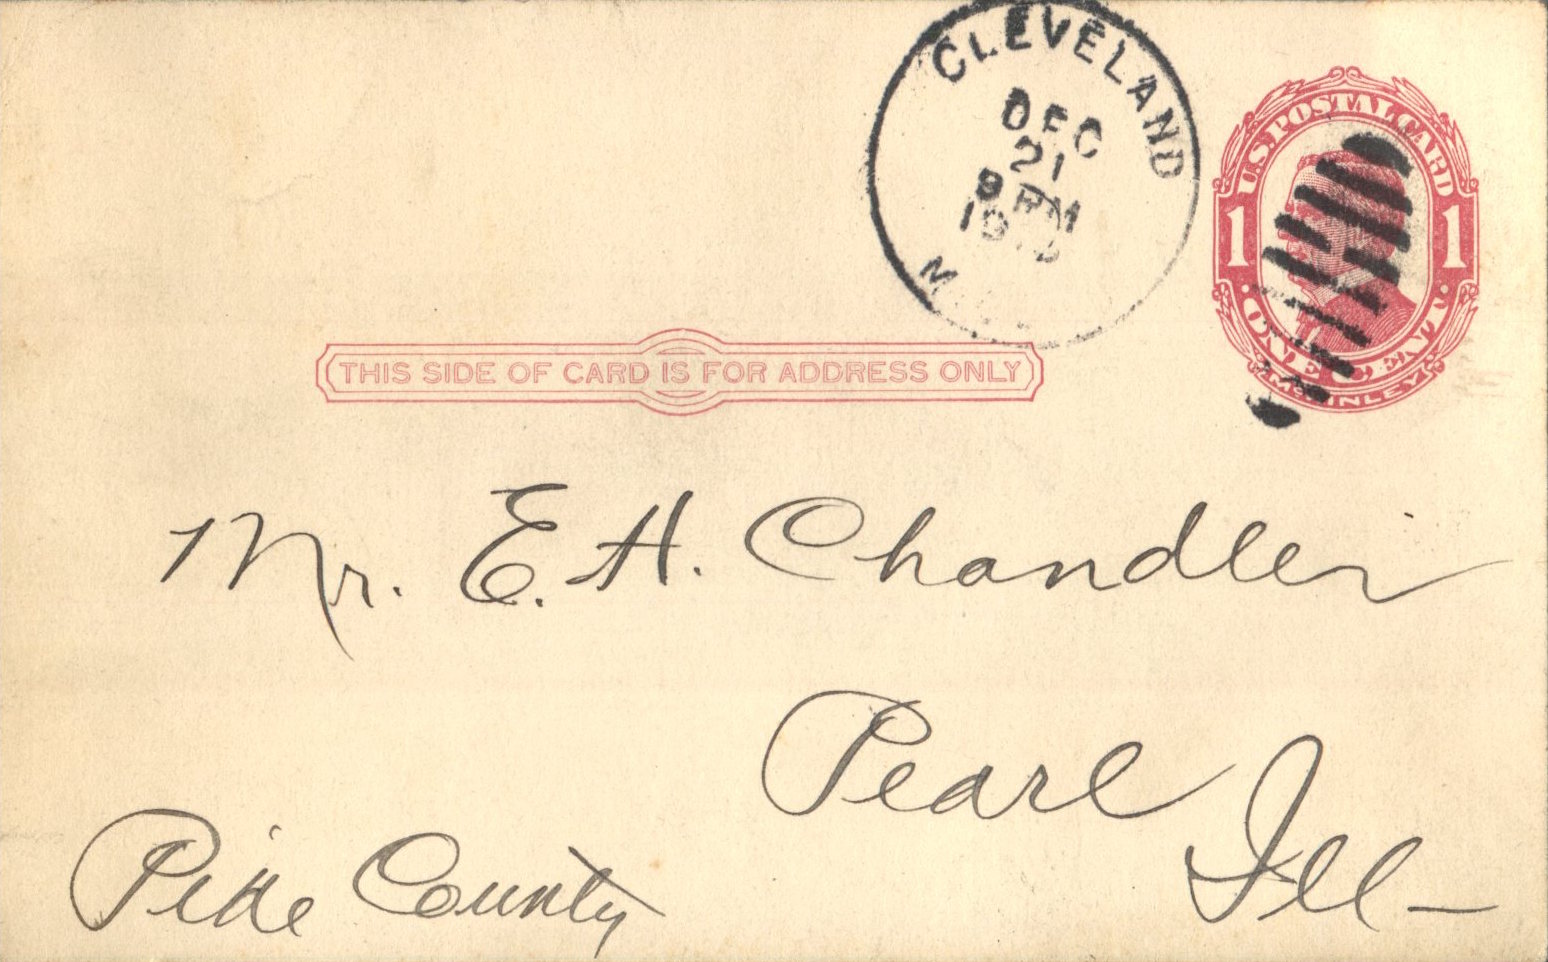 CLEVELAND
DEC
21
PM
U.S. POSTAL CARD
1 1
ONE CENT
McKINLEY
THIS SIDE OF CARD IS FOR ADDRESS ONLY
Mr. E. H. Chandler
Pearl
Ill
Pike County